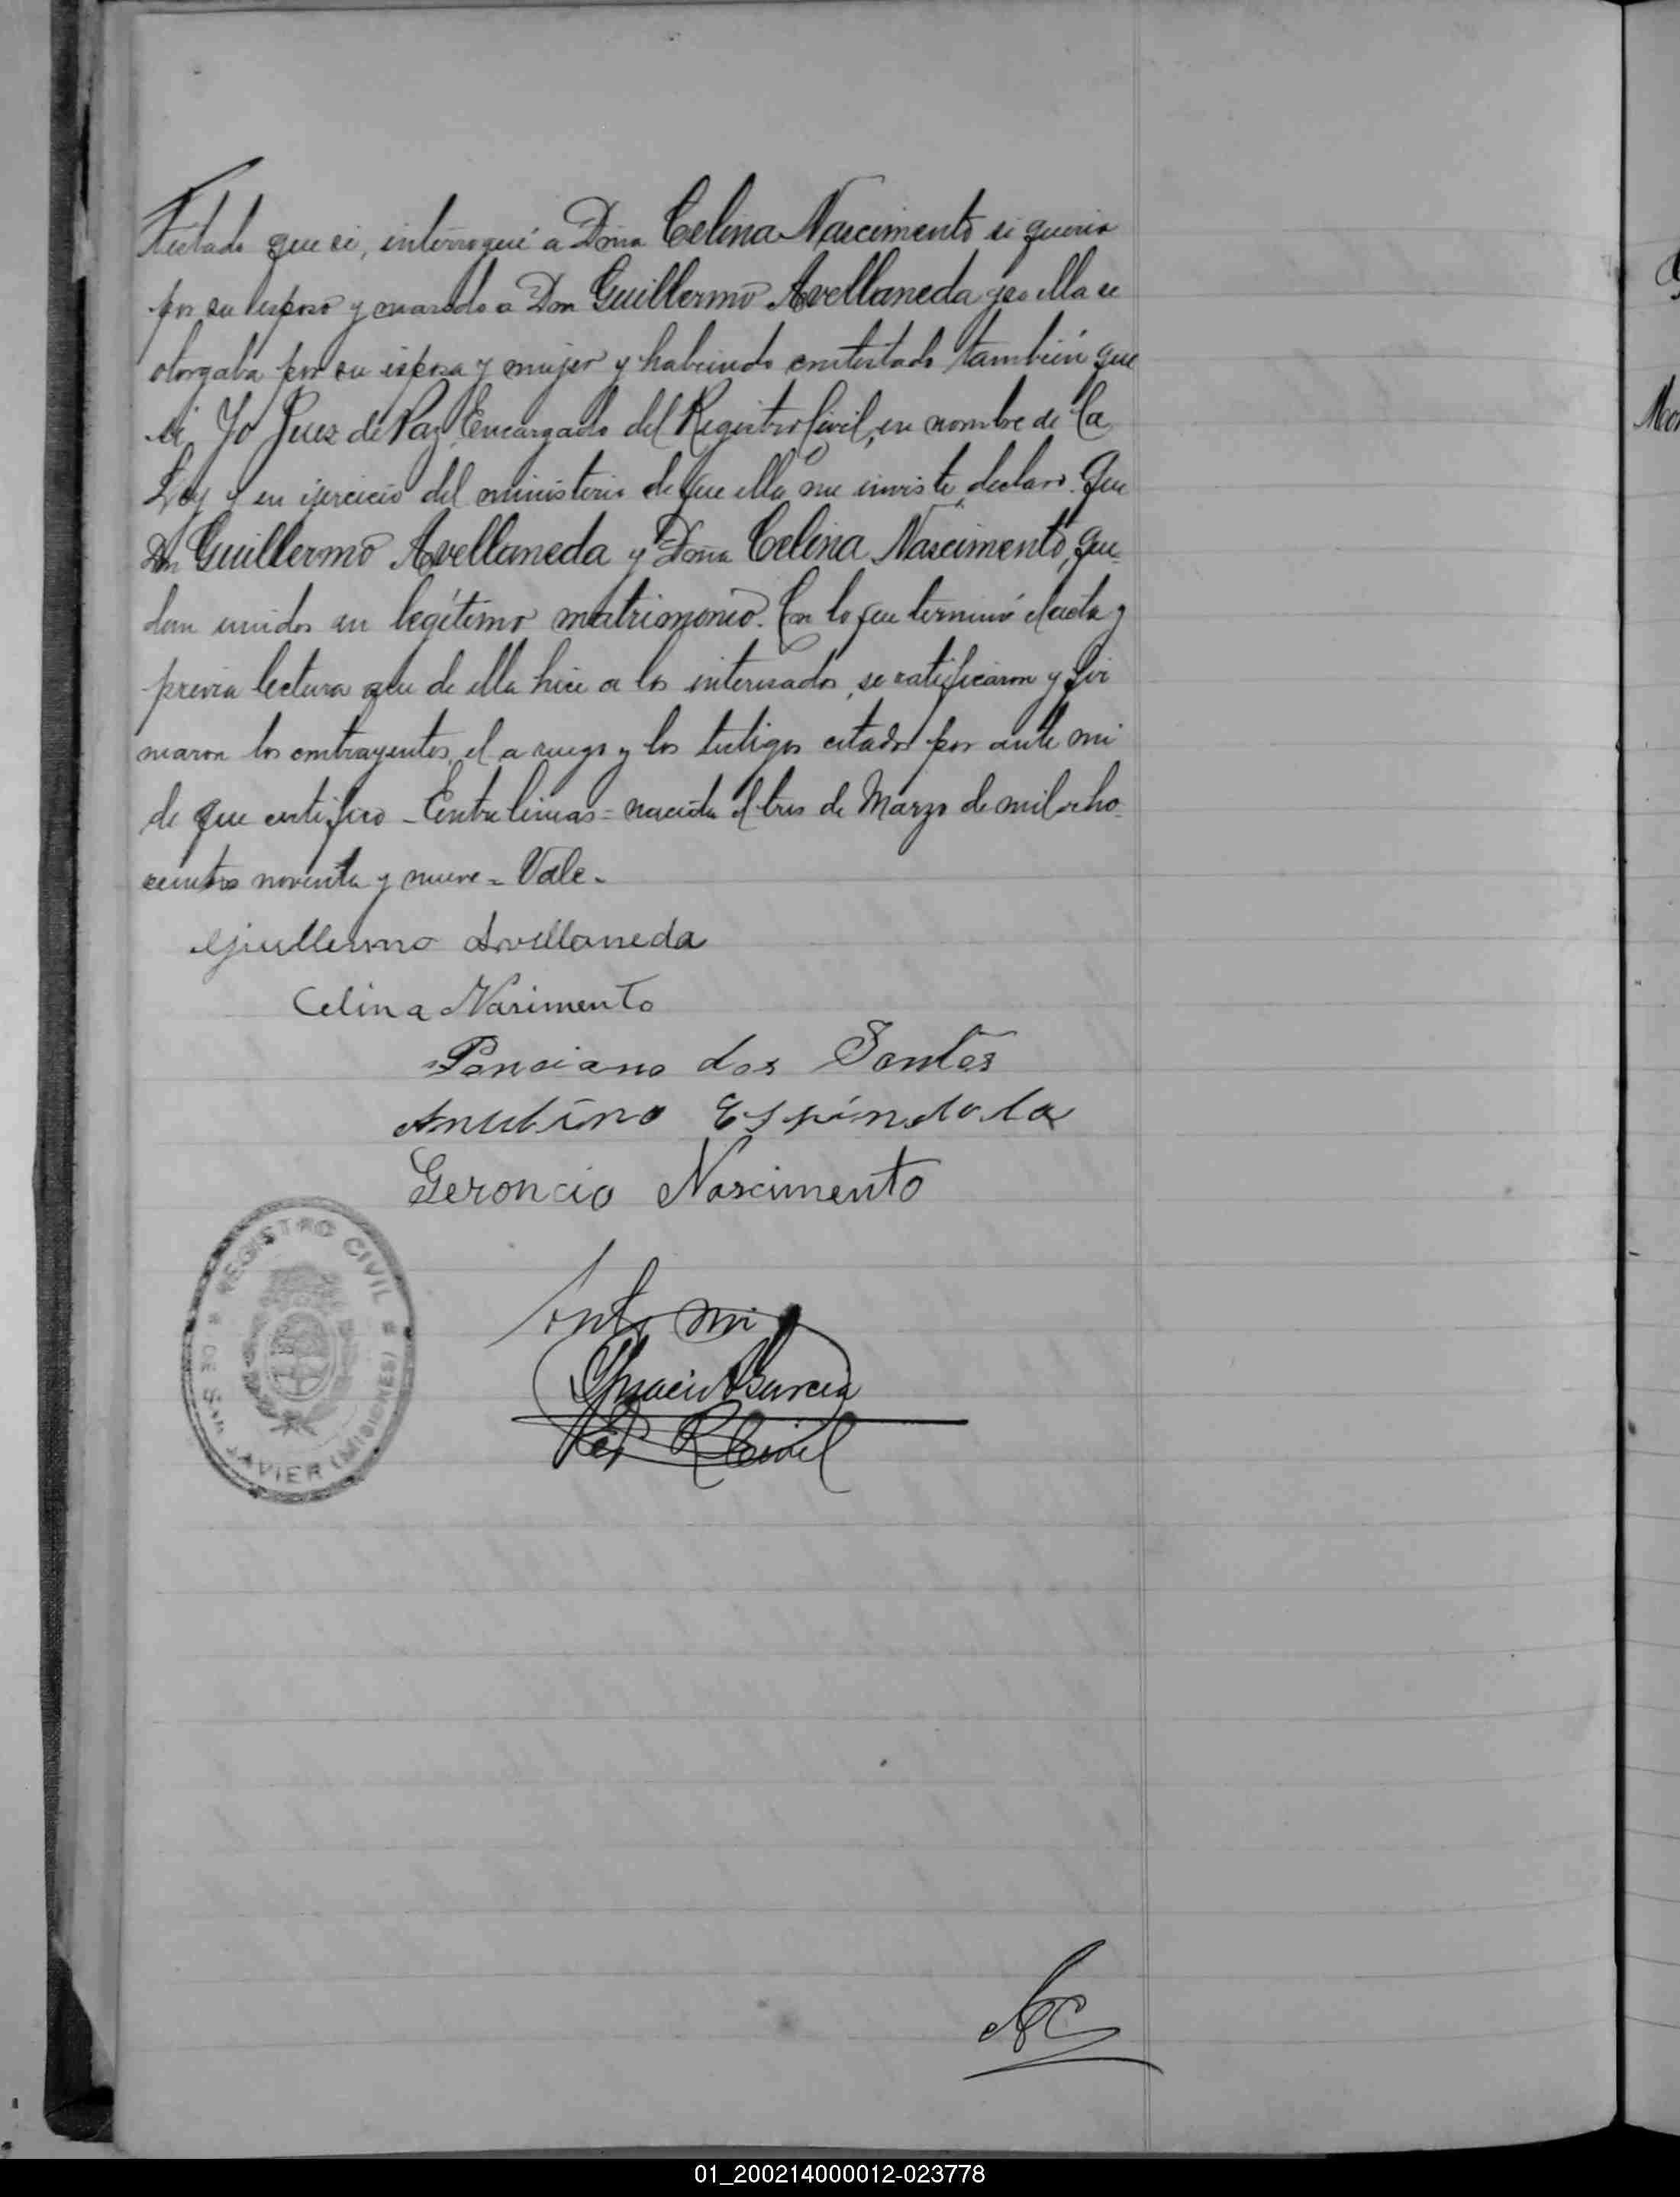 testado que si, interrogué a Doña Celina Nascimento si queria
por su esposo y marido a Don Guillermo Avellaneda y si ella se
otorgaba por su esposa y mujer y habiendo contestado también que
si, Yo Juez de Paz Encargado del Registro Civil, en nombre de la
Ley y en ejercicio del ministerio de que ella me inviste, declaro: Que
Don Guillermo Avellaneda y Doña Celina Nascimento, que-
dan unidos en legítimo matrimonio. Con lo que terminó el acta y
previa lectura que de ella hice a los interesados, se ratificaron y fir
maron los contrayentes, el a ruego y los testigos citados por ante mi
de que certifico - Entre lineas = nacida el tres de Marzo de mil ocho-
cientos noventa y nueve = Vale -
Guillermo Avellaneda
Celina Nasimento
Ponciano dos Santos
Espíndola
Geroncio Nascimento
REGISTRO CIVIL
DE SAN JAVIER (MISIONES)
Ante mi
Ygnacio A Garcia
R. Civil
01_200214000012-023778